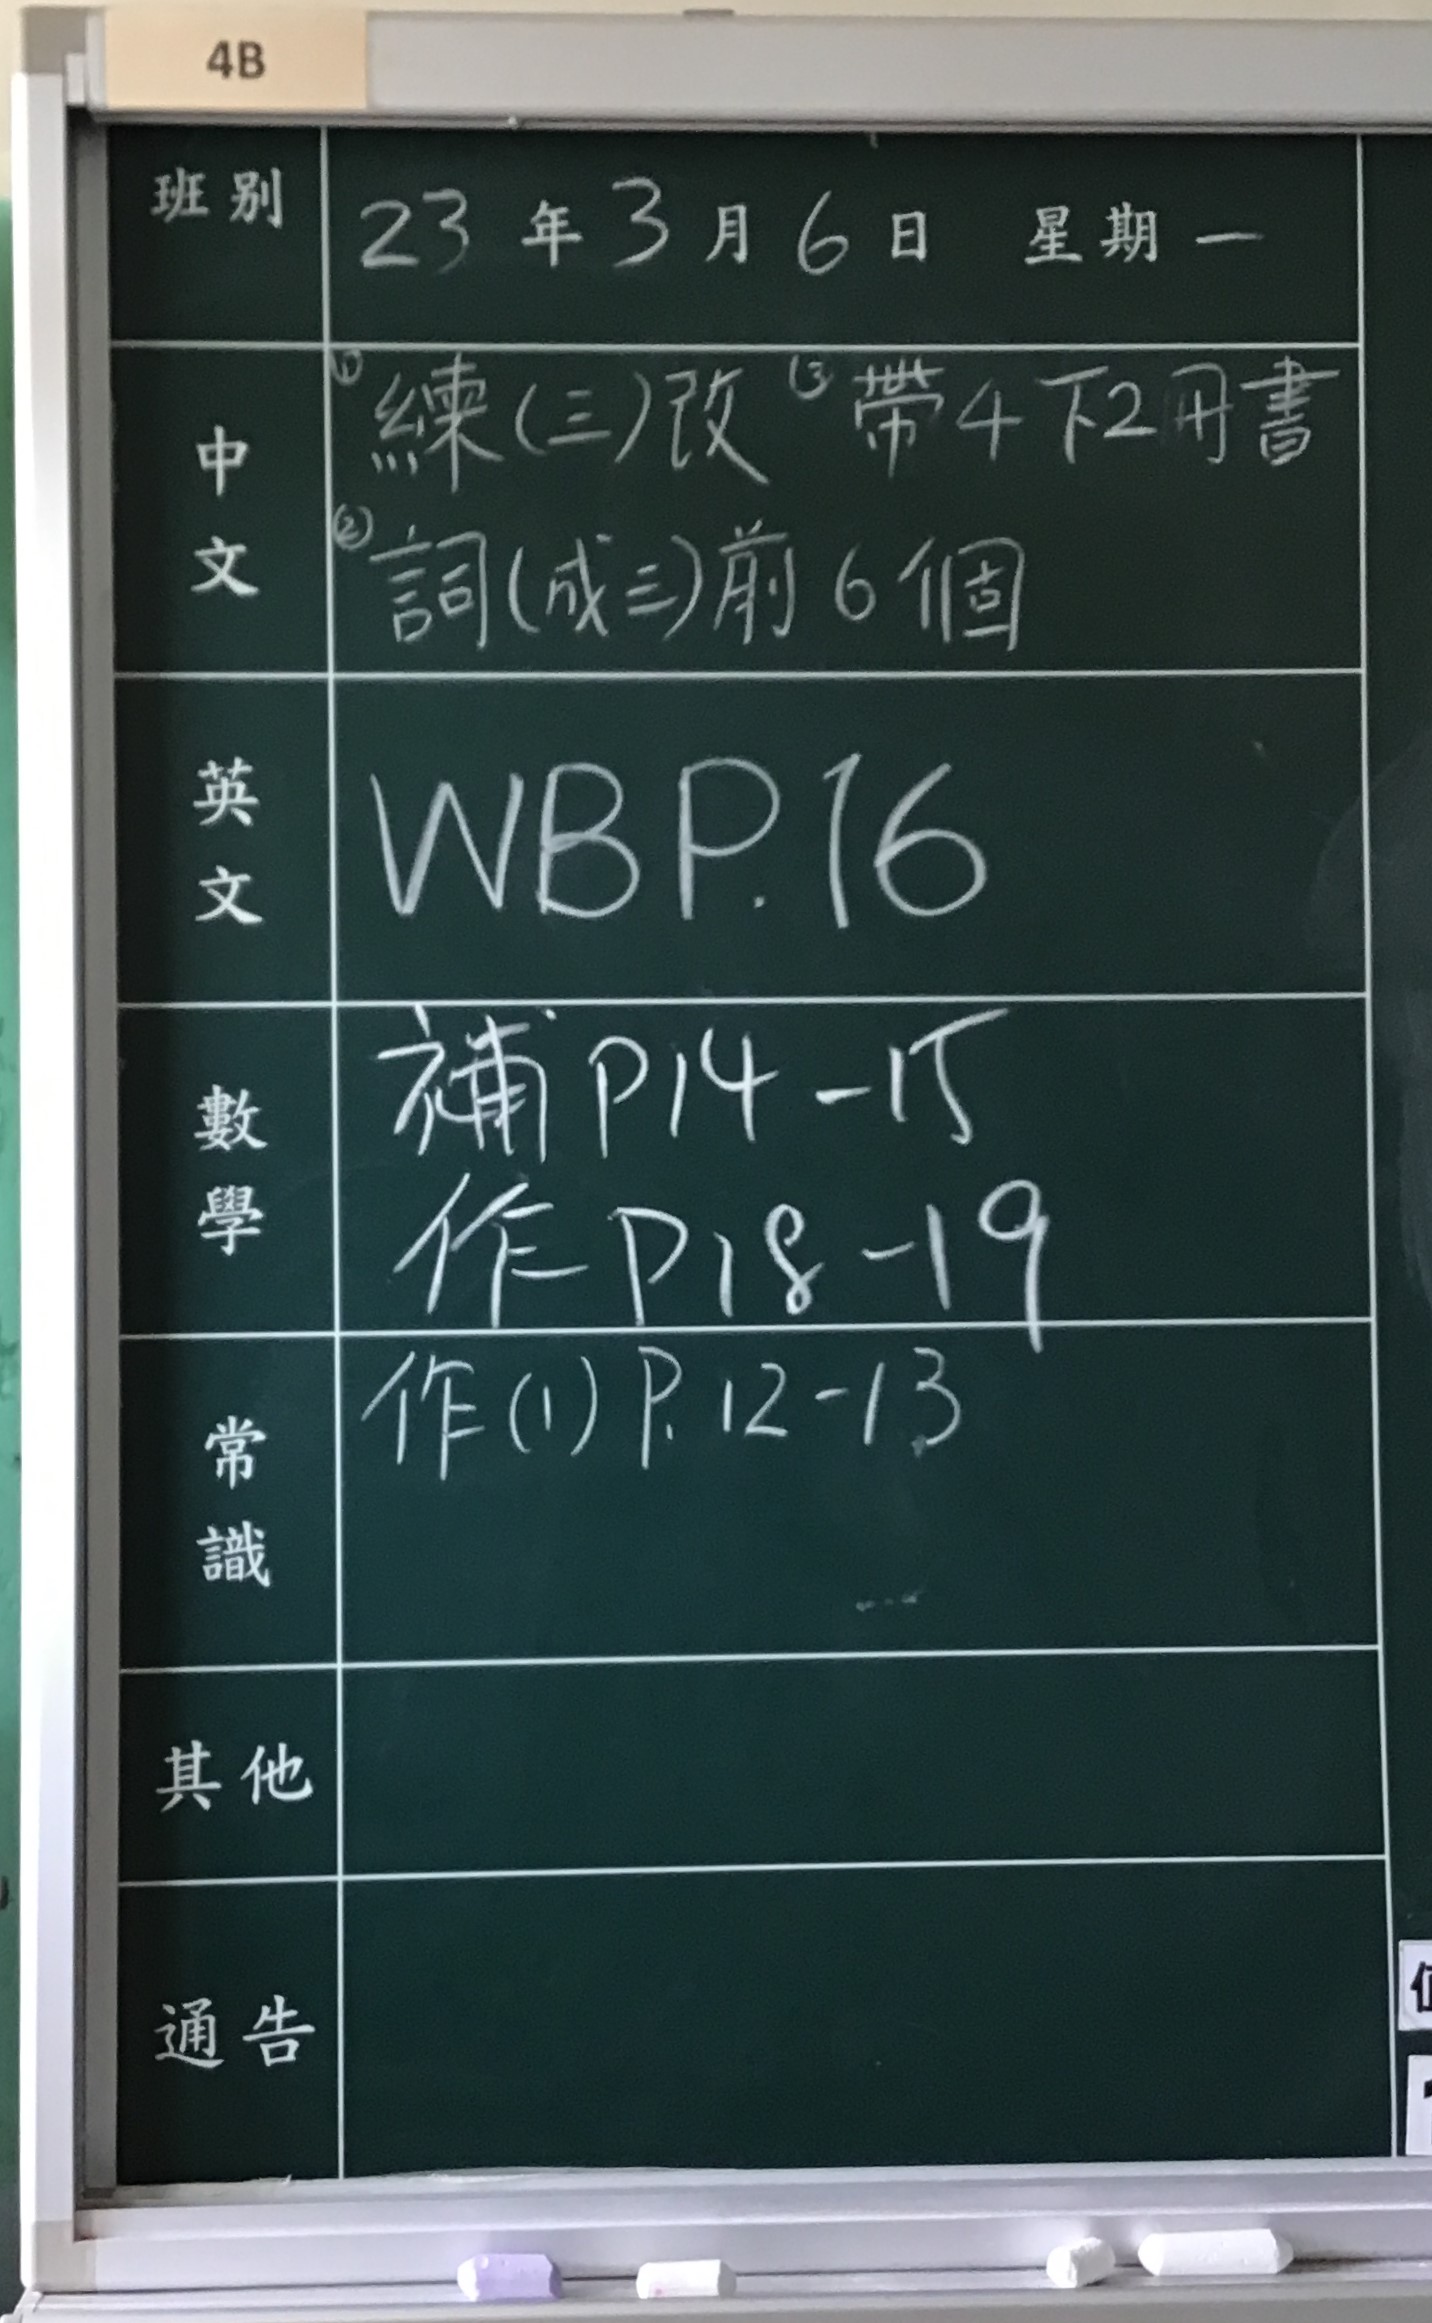 4B
班別
23 年 3 月 6 日 星期一
中文
① 練(三)改 ③ 帶4下2冊書
② 詞(成三)前6個
英文
WB P.16
數學
補 P14-15
作 P18-19
常識
作(1) P.12-13
其他
通告